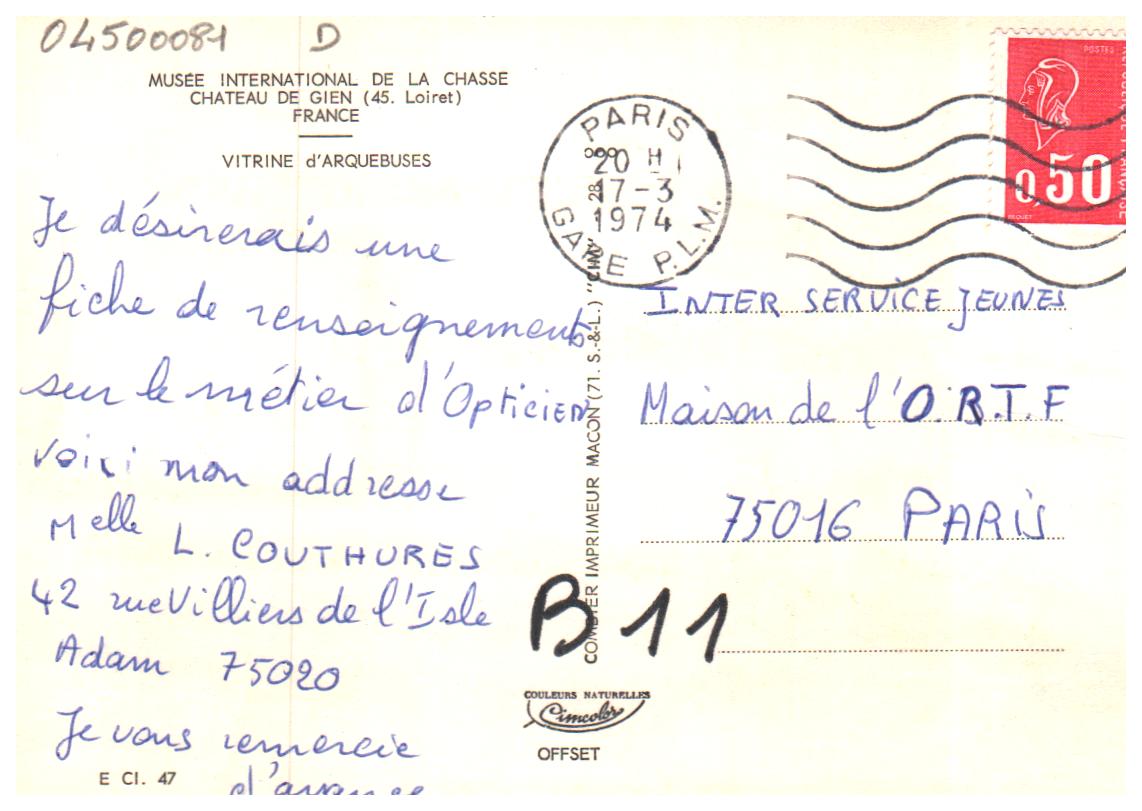 04500081 D
MUSÉE INTERNATIONAL DE LA CHASSE
CHATEAU DE GIEN (45. Loiret)
FRANCE
VITRINE d'ARQUEBUSES
Je désirerais une
fiche de renseignements
sur le métier d'Opticien
voici mon addresse
Melle L. COUTHURES
42 rue Villiers de l'Isle
Adam 75020
Je vous remercie
d'avance
E CI. 47
COMBIER IMPRIMEUR MACON (71. S.-&-L.) "CIM"
COULEURS NATURELLES
Cimcolor
OFFSET
PARIS
20 H
17-3
1974
GARE P.L.M.
POSTES
REPUBLIQUE FRANÇAISE
0,50
BEQUET
INTER SERVICE JEUNES
Maison de l'O.R.T.F
75016 PARIS
B 11